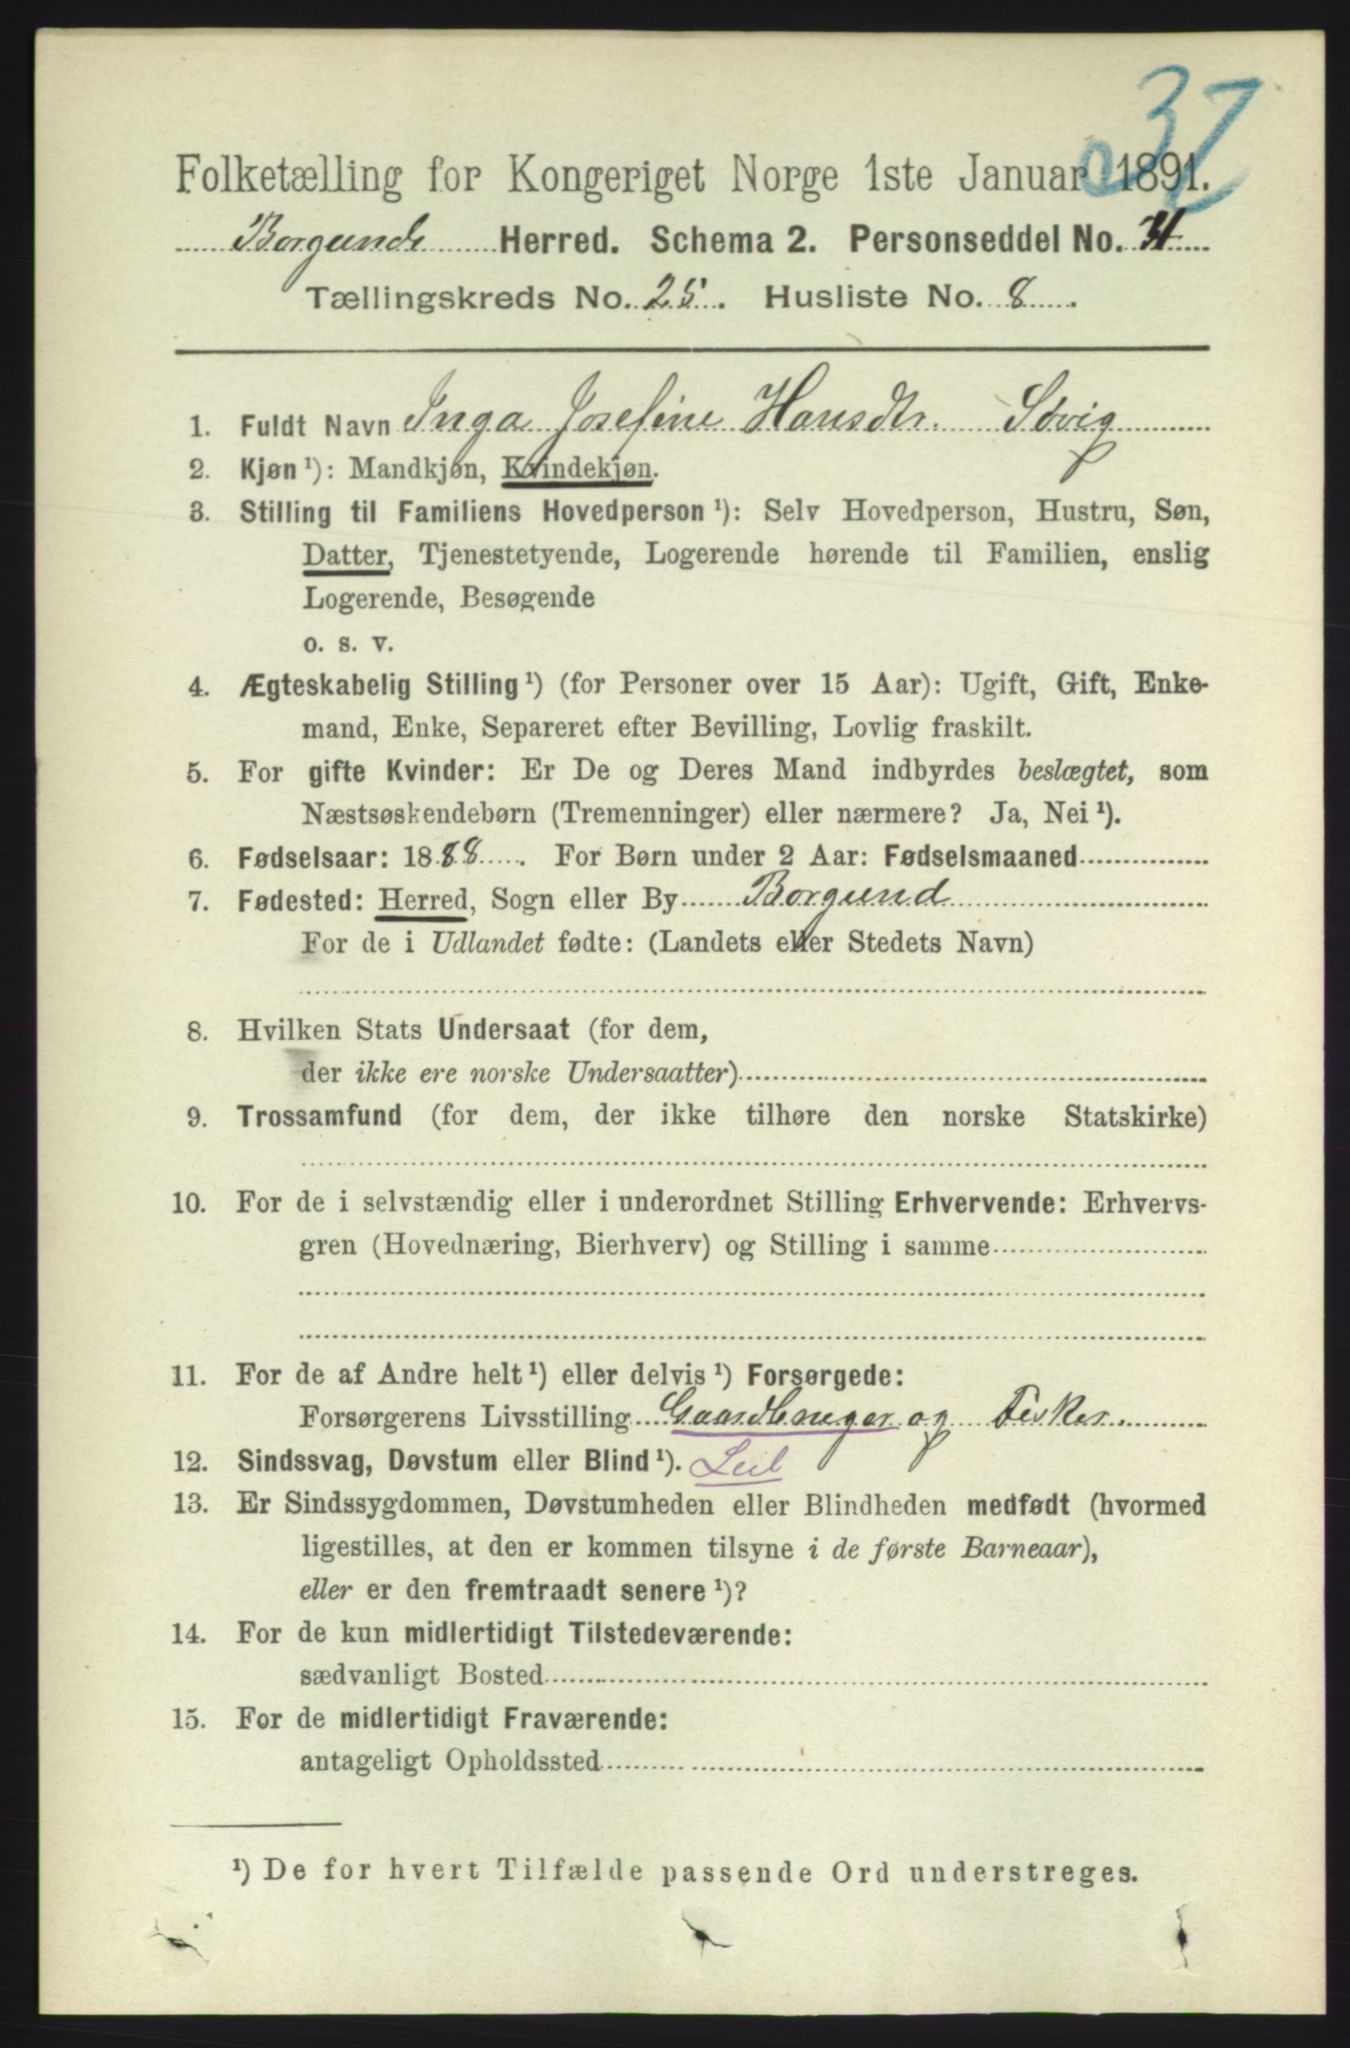 37
Folketælling for Kongeriget Norge 1ste Januar 1891.
Borgund Herred. Schema 2. Personseddel No.
Tællingskreds No. 25. Husliste No. 8.
1. Fuldt Navn Inga Josefine Hansdtr. Sövig
2. Kjøn ¹): Mandkjøn, Kvindekjøn.
3. Stilling til Familiens Hovedperson ¹): Selv Hovedperson, Hustru, Søn,
Datter, Tjenestetyende, Logerende hørende til Familien, enslig
Logerende, Besøgende
o. s. v.
4. Ægteskabelig Stilling ¹) (for Personer over 15 Aar): Ugift, Gift, Enke-
mand, Enke, Separeret efter Bevilling, Lovlig fraskilt.
5. For gifte Kvinder: Er De og Deres Mand indbyrdes beslægtet, som
Næstsøskendebørn (Tremenninger) eller nærmere? Ja, Nei ¹).
6. Fødselsaar: 1888. For Børn under 2 Aar: Fødselsmaaned
7. Fødested: Herred, Sogn eller By Borgund
For de i Udlandet fødte: (Landets eller Stedets Navn)
8. Hvilken Stats Undersaat (for dem,
der ikke ere norske Undersaatter)
9. Trossamfund (for dem, der ikke tilhøre den norske Statskirke)
10. For de i selvstændig eller i underordnet Stilling Erhvervende: Erhvervs-
gren (Hovednæring, Bierhverv) og Stilling i samme
11. For de af Andre helt ¹) eller delvis ¹) Forsørgede:
Forsørgerens Livsstilling Gaardbruger og Fisker.
12. Sindssvag, Døvstum eller Blind ¹). Leil
13. Er Sindssygdommen, Døvstumheden eller Blindheden medfødt (hvormed
ligestilles, at den er kommen tilsyne i de første Barneaar),
eller er den fremtraadt senere ¹)?
14. For de kun midlertidigt Tilstedeværende:
sædvanligt Bosted
15. For de midlertidigt Fraværende:
antageligt Opholdssted
¹) De for hvert Tilfælde passende Ord understreges.